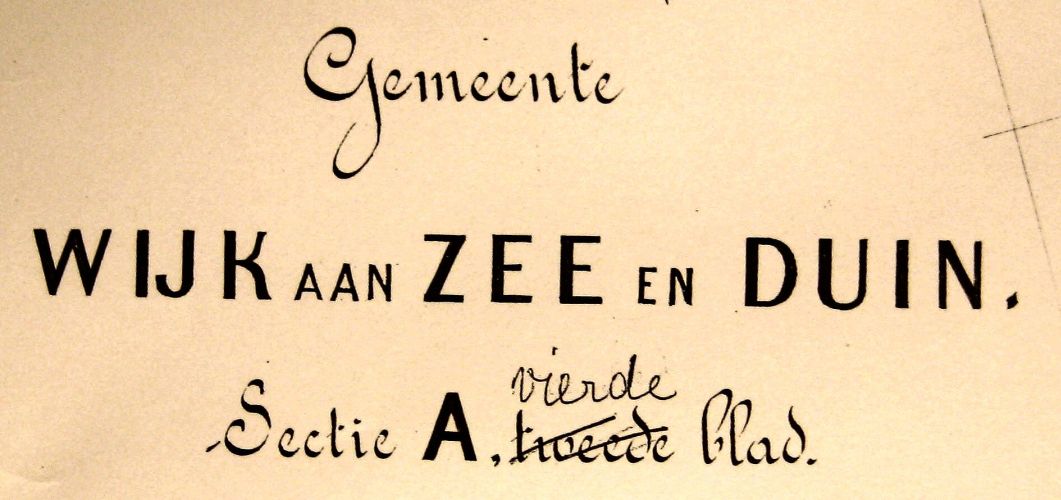 Gemeente
WIJK AAN ZEE EN DUIN.
vierde
Sectie A, tweede blad.